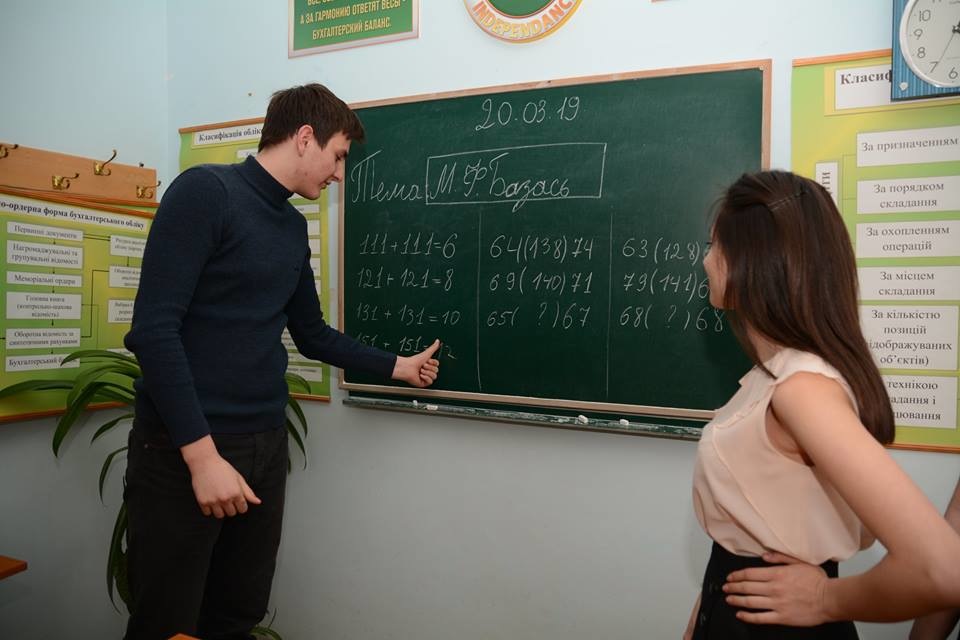 А ЗА ГАРМОНИЮ ОТВЕТЯТ ВЕСЫ -
БУХГАЛТЕРСКИЙ БАЛАНС.
INDEPENDANC
20.03.19
Тема: М. Ф. Базась
111+111=6
121+121=8
131+131=10
151+151=
64(138)74
69(140)71
65( ?)67
63(128)
79(141)6
68( ?)68
Класифікація облік
о-ордерна форма бухгалтерського обліку
Первинні документи
Нагромаджувальні та
групувальні відомості
Меморіальні ордери
Головна книга
(контрольно-шахова
відомість)
Оборотна відомість за
синтетичними рахунками
Бухгалтерський
Класиф
За призначенням
За порядком
складання
За охопленням
операцій
За місцем
складання
За кількістю
позицій
відображуваних
об’єктів)
технікою
складання і
10
9
8
7
6